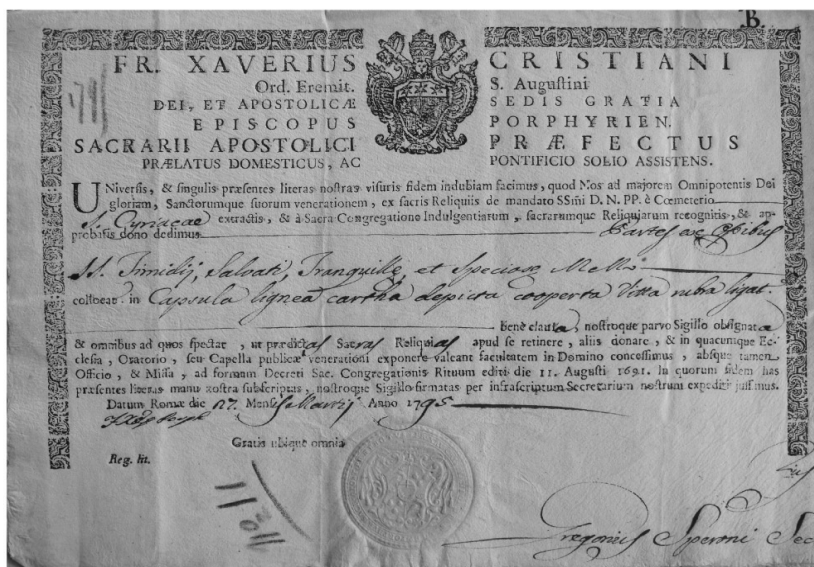 B.
FR. XAVERIUS CRISTIANI
Ord. Eremit. S. Augustini
DEI, ET APOSTOLICÆ SEDIS GRATIA
EPISCOPUS PORPHYRIEN.
SACRARII APOSTOLICI PRÆFECTUS
PRÆLATUS DOMESTICUS, AC PONTIFICIO SOLIO ASSISTENS.
UNiversis, & singulis præsentes literas nostras visuris fidem indubiam facimus, quod Nos ad majorem Omnipotentis Dei
gloriam, Sanctorumque suorum venerationem, ex sacris Reliquiis de mandato SSmi D. N. PP. è Cœmeterio
S. Cyriacae extractis, & à Sacra Congregatione Indulgentiarum, sacrarumque Reliquiarum recognitis, & ap-
probatis dono dedimus Partes ex Ossibus
SS. Timidij, Salvati, Tranquille, et Speciose MM
collocat. in Capsula lignea cartha depicta cooperta Vitta rubra ligat.
bene clausa, nostroque parvo Sigillo obsignata
& omnibus ad quos spectat, ut prædictas Sacras Reliquias apud se retinere, aliis donare, & in quacumque Ec-
clesia, Oratorio, seu Capella publicæ venerationi exponere valeant facultatem in Domino concessimus, absque tamen
Officio, & Missa, ad formam Decreti Sac. Congregationis Rituum editi die 11. Augusti 1691. In quorum fidem has
præsentes literas manu nostra subscriptas, nostroque Sigillo firmatas per infrascriptum Secretarium nostrum expediri jussimus.
Datum Romæ die 27. Mensis Martij Anno 1795
Gratis ubique omnia
Reg. lit.
No 11
Gregorius Speroni Sec